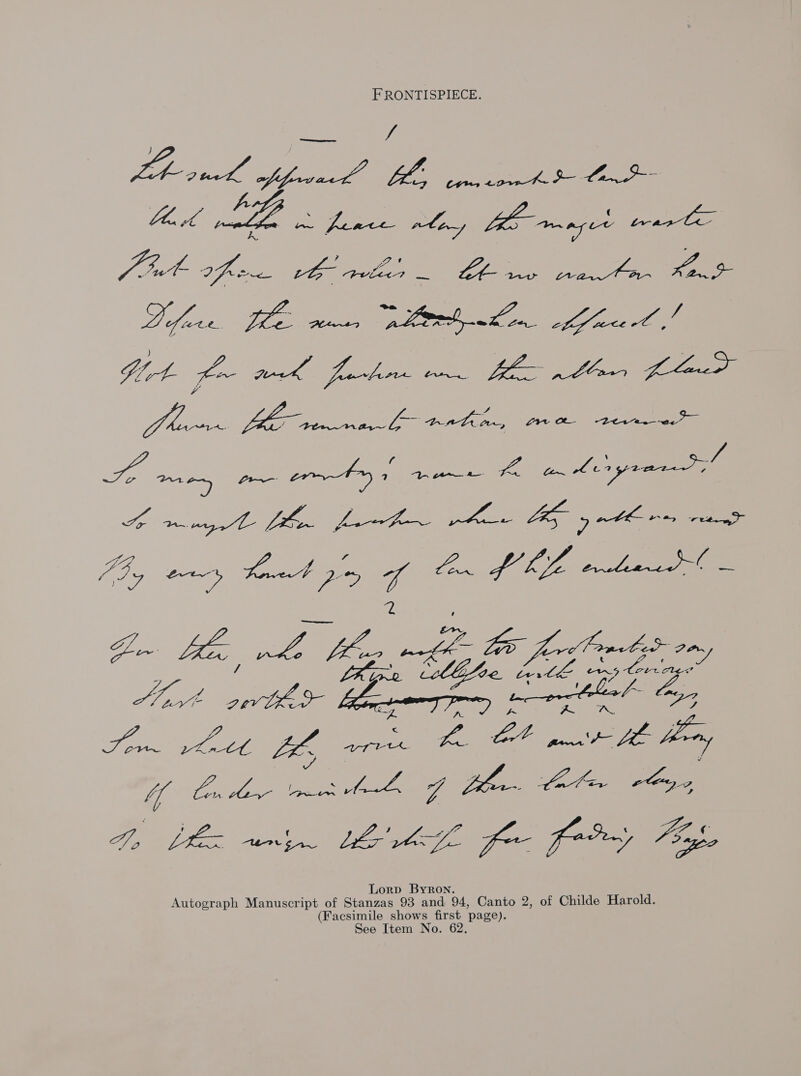 FRONTISPIECE.
1
Let such approach this consecrated land
pass
And in peace along the magic waste
But spare its relics — let no wanton hand
Deface the scenes already how effaced!
Not for such purpose were these altars placed
Revere the remnants nations once revered
So may our country's name be undisgraced!
So mayst thou prosper where thy youth was reared
By every honest joy of Love & Life endeared! —
2
in
For thee, who thus too protracted song
thine Idlesse with inglorious
Hast soothed lays,
Soon shall thy voice be lost amid the throng
Of louder minstrels of these later days,
To them resign the strife for fading Bays
LORD BYRON.
Autograph Manuscript of Stanzas 93 and 94, Canto 2, of Childe Harold.
(Facsimile shows first page).
See Item No. 62.